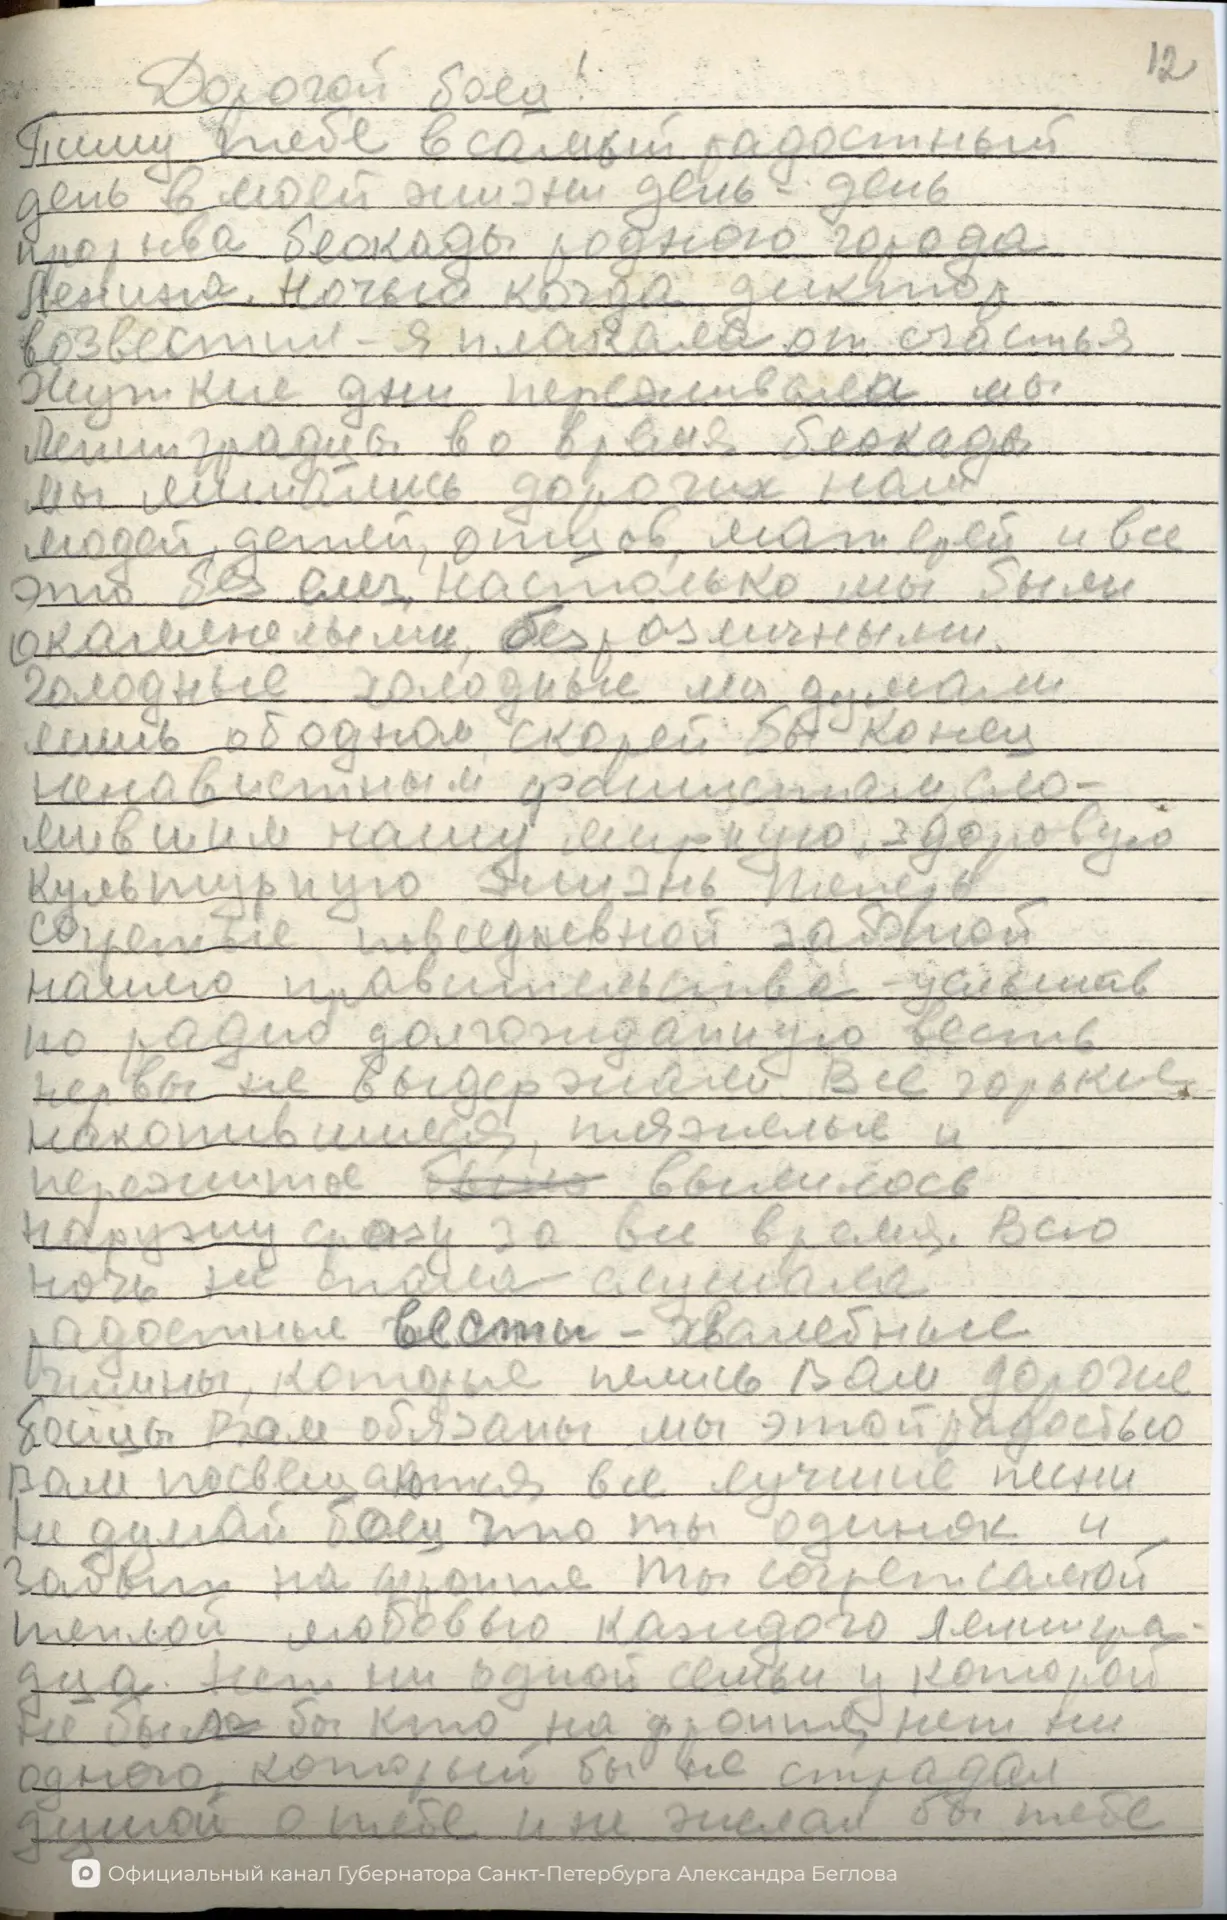 12
Дорогой боец!
Пишу тебе в самый радостный
день в моей жизни день - день
прорыва блокады родного города
Ленина. Ночью когда диктор
возвестил - я плакала от счастья
Жуткие дни переживали мы
Ленинградцы во время блокады
мы лишались дорогих нам
людей, детей, отцов, матерей и все
это без слез, настолько мы были
окаменелыми, безразличными.
Голодные холодные мы думали
лишь об одном, скорей бы конец
ненавистным фашистам, сло-
мившим нашу мирную, здоровую
культурную жизнь Теперь
согретые повседневной заботой
нашего правительства - услышав
по радио долгожданную весть
нервы не выдержали. Все горькие
накопившиеся, тяжелые и
пережитое вылилось
наружу сразу за все время. Всю
ночь не спала слушала
радостные вести - хвалебные
гимны, которые пелись Вам дорогие
бойцы Вам обязаны мы этой радостью
Вам посвещаются все лучшие песни
Не думай боец что ты одинок и
забыт на фронте Ты согрет самой
теплой любовью каждого Ленингра-
дца. Нет ни одной семьи у которой
не было бы кто на фронте, нет ни
одного, который бы не страдал
душой о тебе и не желал бы тебе
Официальный канал Губернатора Санкт-Петербурга Александра Беглова